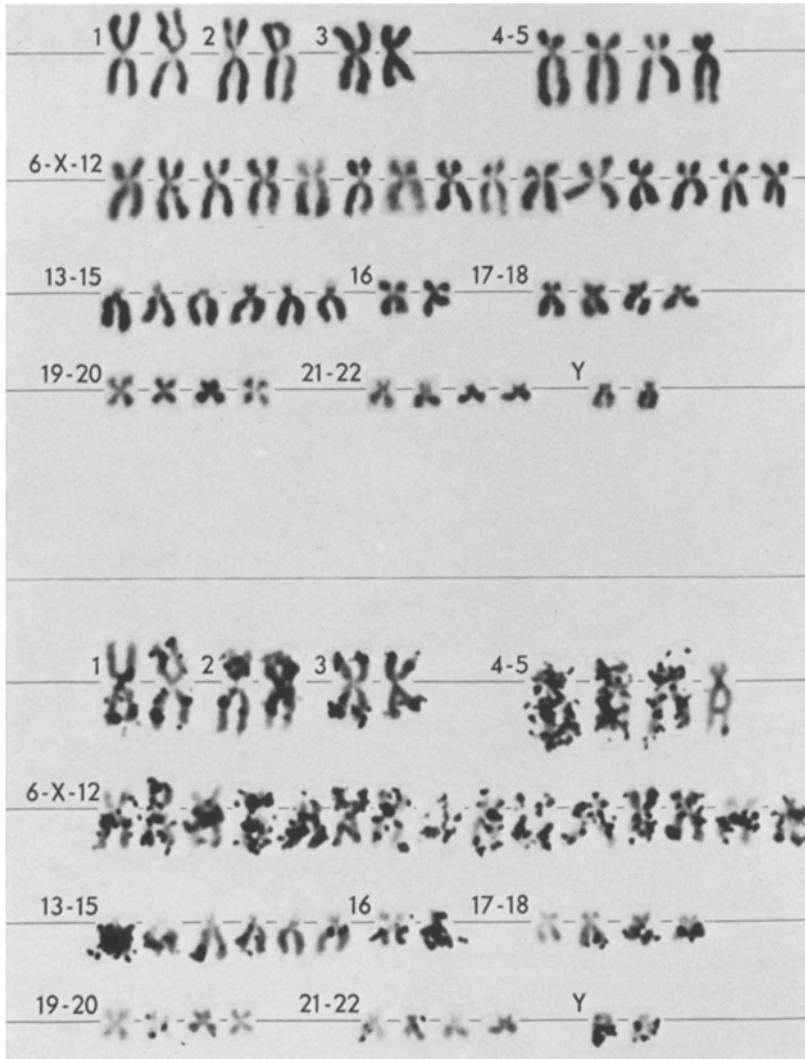 1 2 3 4-5
6-X-12
13-15 16 17-18
19-20 21-22 Y
1 2 3 4-5
6-X-12
13-15 16 17-18
19-20 21-22 Y